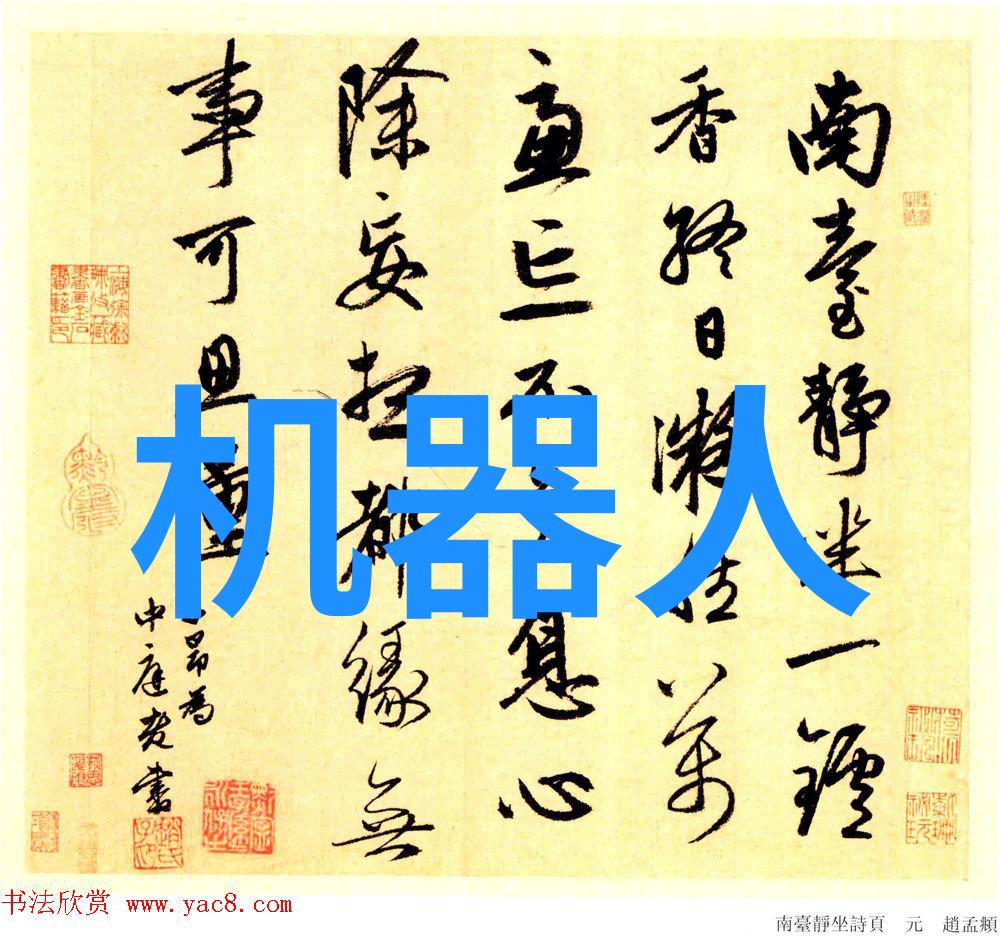 南臺靜坐一鑪
香終日凝萬
慮亡不息心
除妄想都緣無
事可思量
昂為
中庭老書
机器人
书法欣赏 www.yac8.com
南臺靜坐詩頁 元 趙孟頫